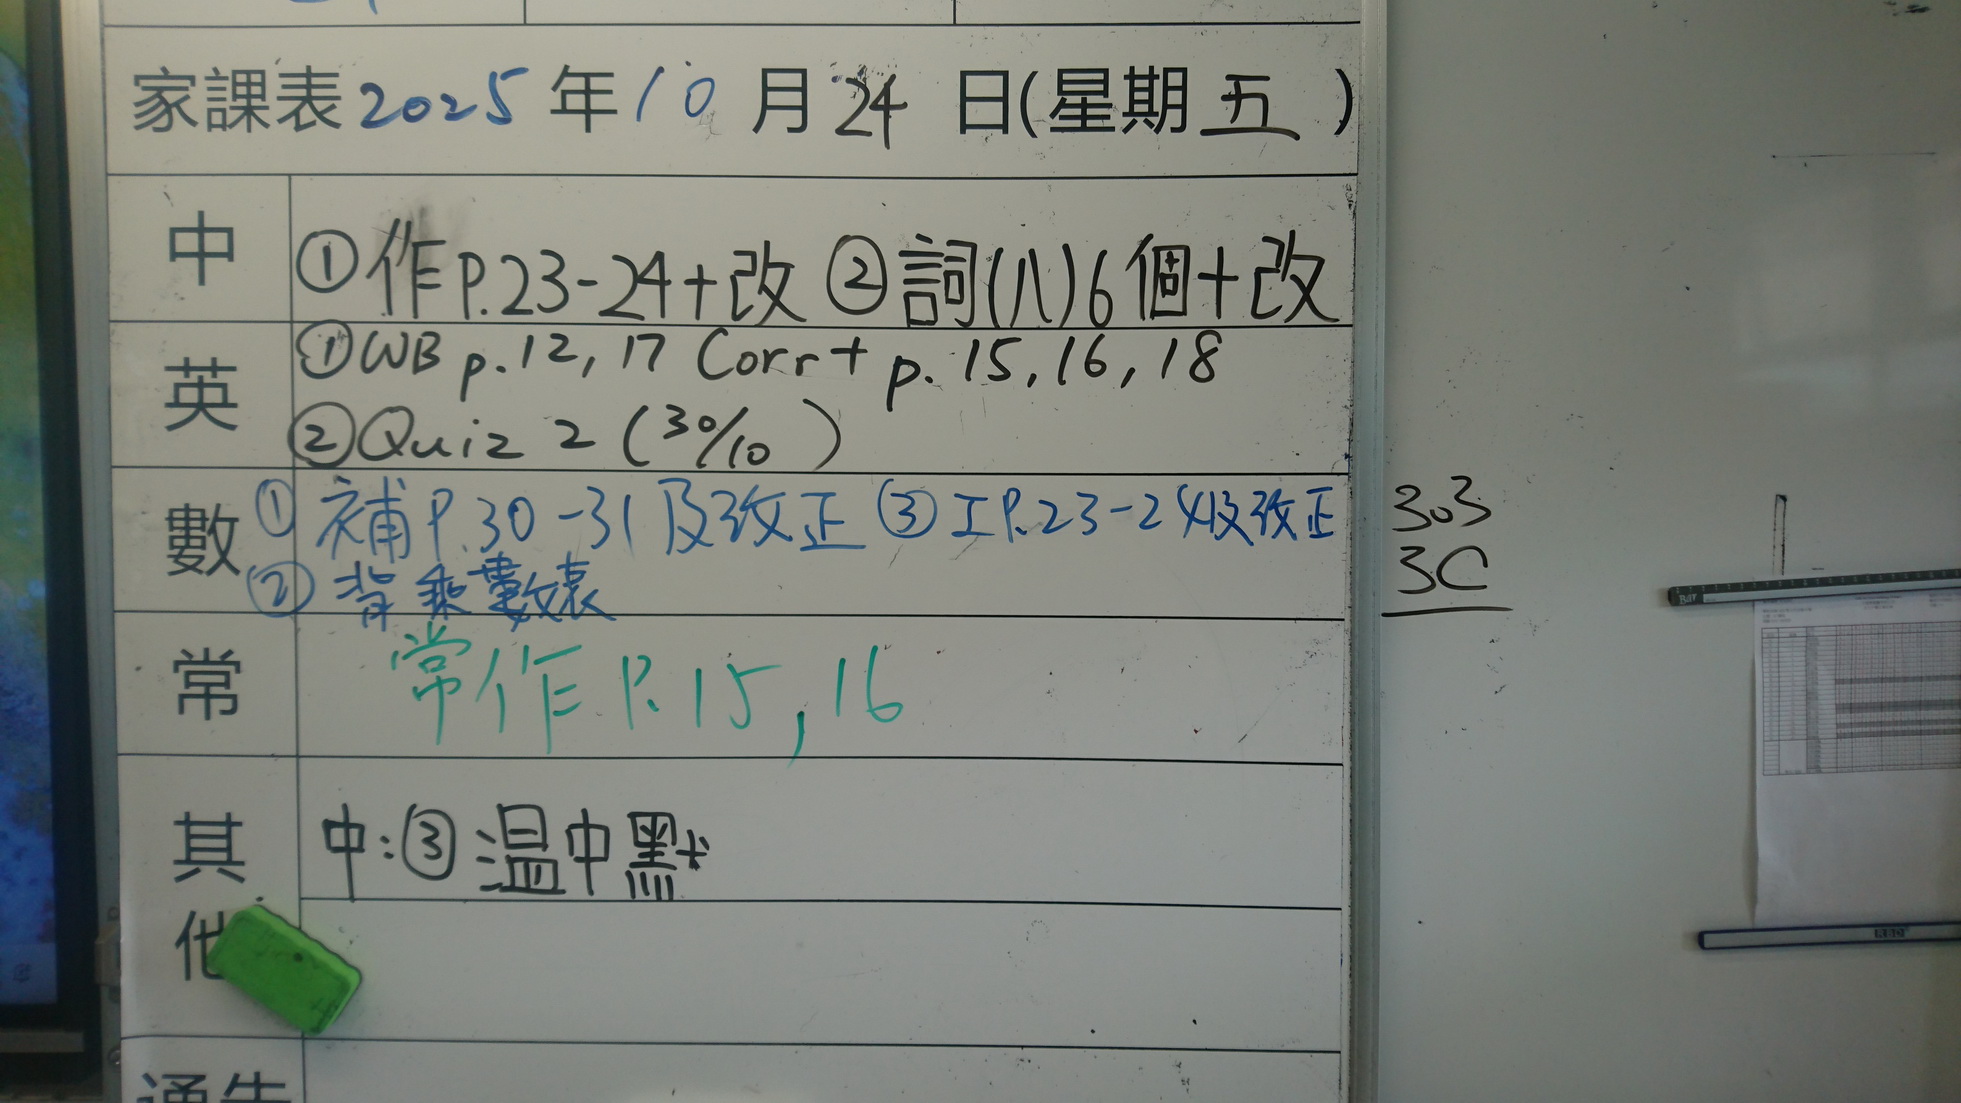 家課表2025年10月24日(星期五)
中 ①作P.23-24+改 ②詞(八)6個+改
英 ①WB p.12, 17 Corr+ p. 15, 16, 18
②Quiz 2 (30/10)
數 ①補P.30-31及改正 ③工P.23-24及改正
②背乘數表
常 常作 P.15, 16
其他 中:③溫中默
通告
303
3C